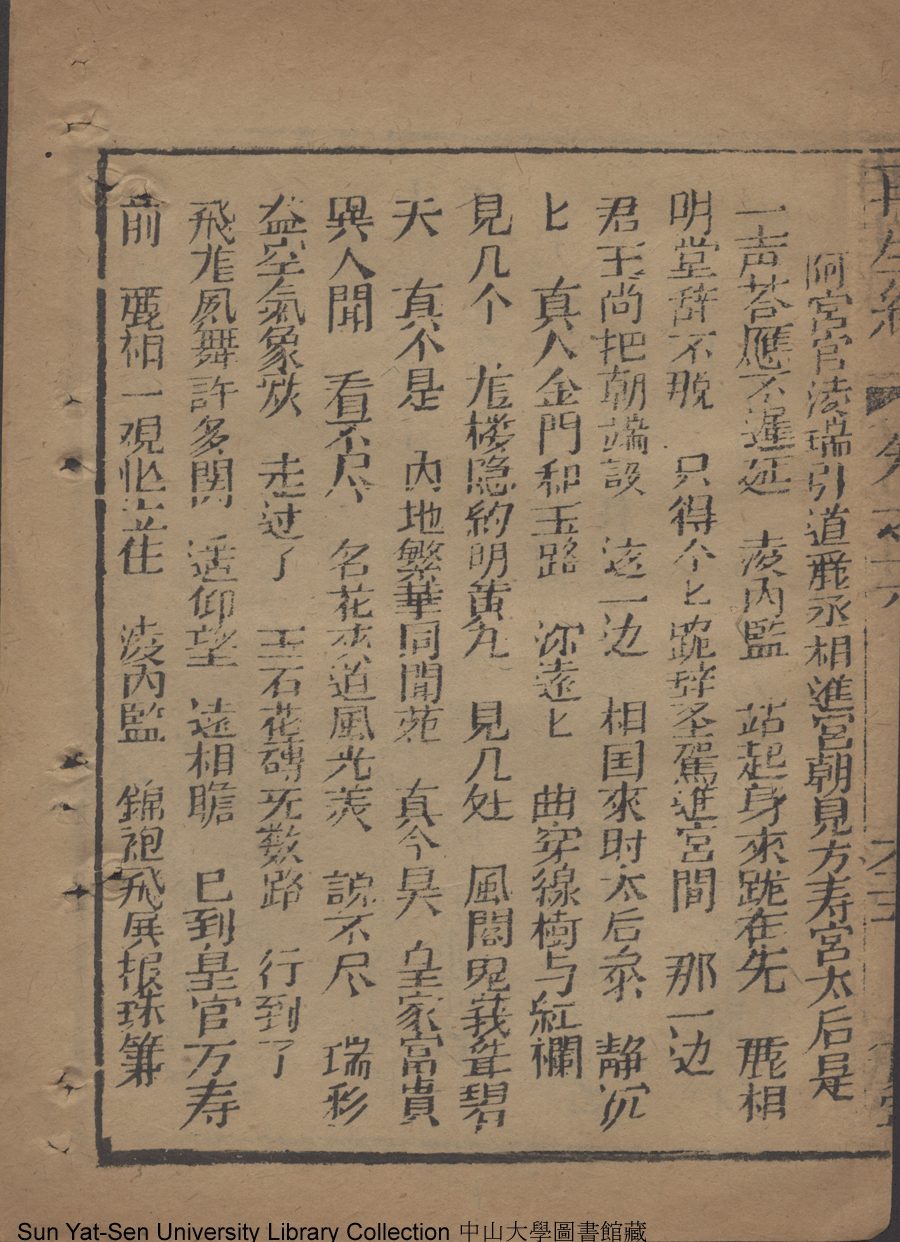 再生緣
卷之六
阿宮官淩瑞引道厐丞相進宮朝見万寿宮太后是
一声荅應不遲延 淩內監 站起身來跪在先 厐相
明堂辞不脫 只得个匕跪辞圣駕進宮間 那一边
君王尚把朝端設 这一边 相国來时太后叅 静沉
匕 真人金門和玉路 深遠匕 曲穿線樹与紅欄
見几个 龙楼隐約明黄九 見几处 風閣嵬莪耸碧
天 真不是 內地繁華同閬苑 真今是 皇家富貴
異人間 看不尽 名花夾道風光羨 說不尽 瑞彩
盈空氣象 走过了 玉石花磚无数路 行到了
飛龙凤舞許多関 遥仰望 遠相瞻 已到皇宫万寿
前 厐相一观忙立住 淩內監 錦袍飛展报珠簾
Sun Yat-Sen University Library Collection 中山大學圖書館藏